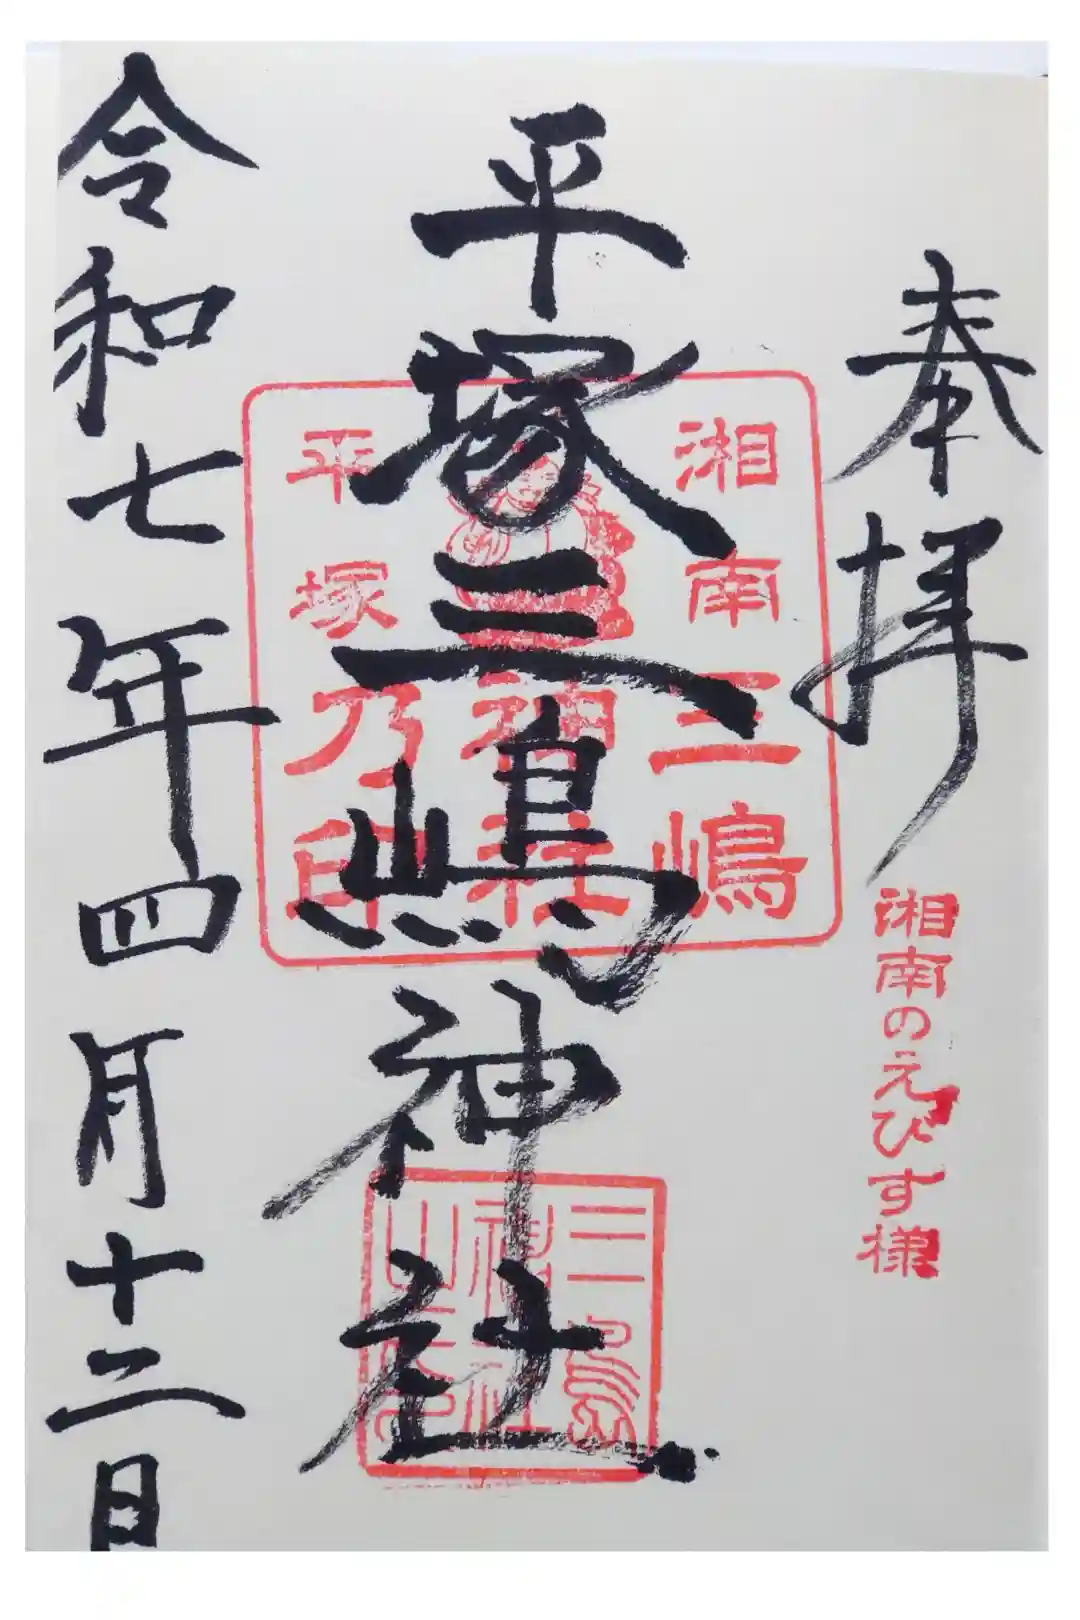 奉拝
湘南のえびす様
平塚三嶋神社
湘南三嶋
神社
平塚乃印
三島
神社
令和七年四月十二日